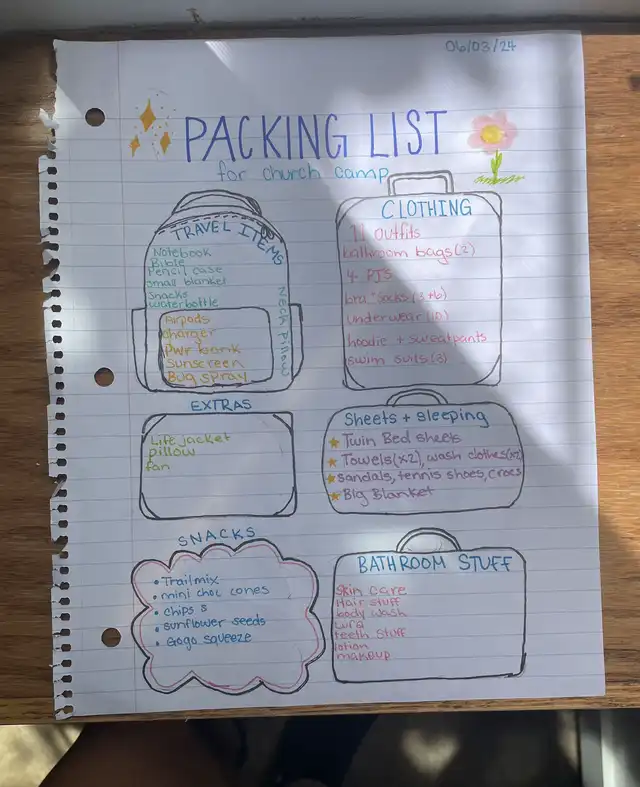 06/03/24
PACKING LIST
for church camp
TRAVEL ITEMS
Notebook
Bible
Pencil case
small blanket
Snacks
waterbottle
NECK Pillow
Airpods
charger
Pwr bank
Sunscreen
Bug spray
CLOTHING
11 outfits
bathroom bags (2)
4 PJS
bra + socks (3+6)
underwear (10)
hoodie + sweatpants
swim suits (3)
EXTRAS
Life jacket
pillow
fan
Sheets + sleeping
Twin Bed sheets
Towels (x2), wash clothes (x2)
sandals, tennis shoes, crocs
Big Blanket
SNACKS
• Trailmix
• mini choc cones
• chips
• sunflower seeds
• Gogo squeeze
BATHROOM STUFF
Skin care
Hair stuff
body wash
teeth stuff
lotion
makeup